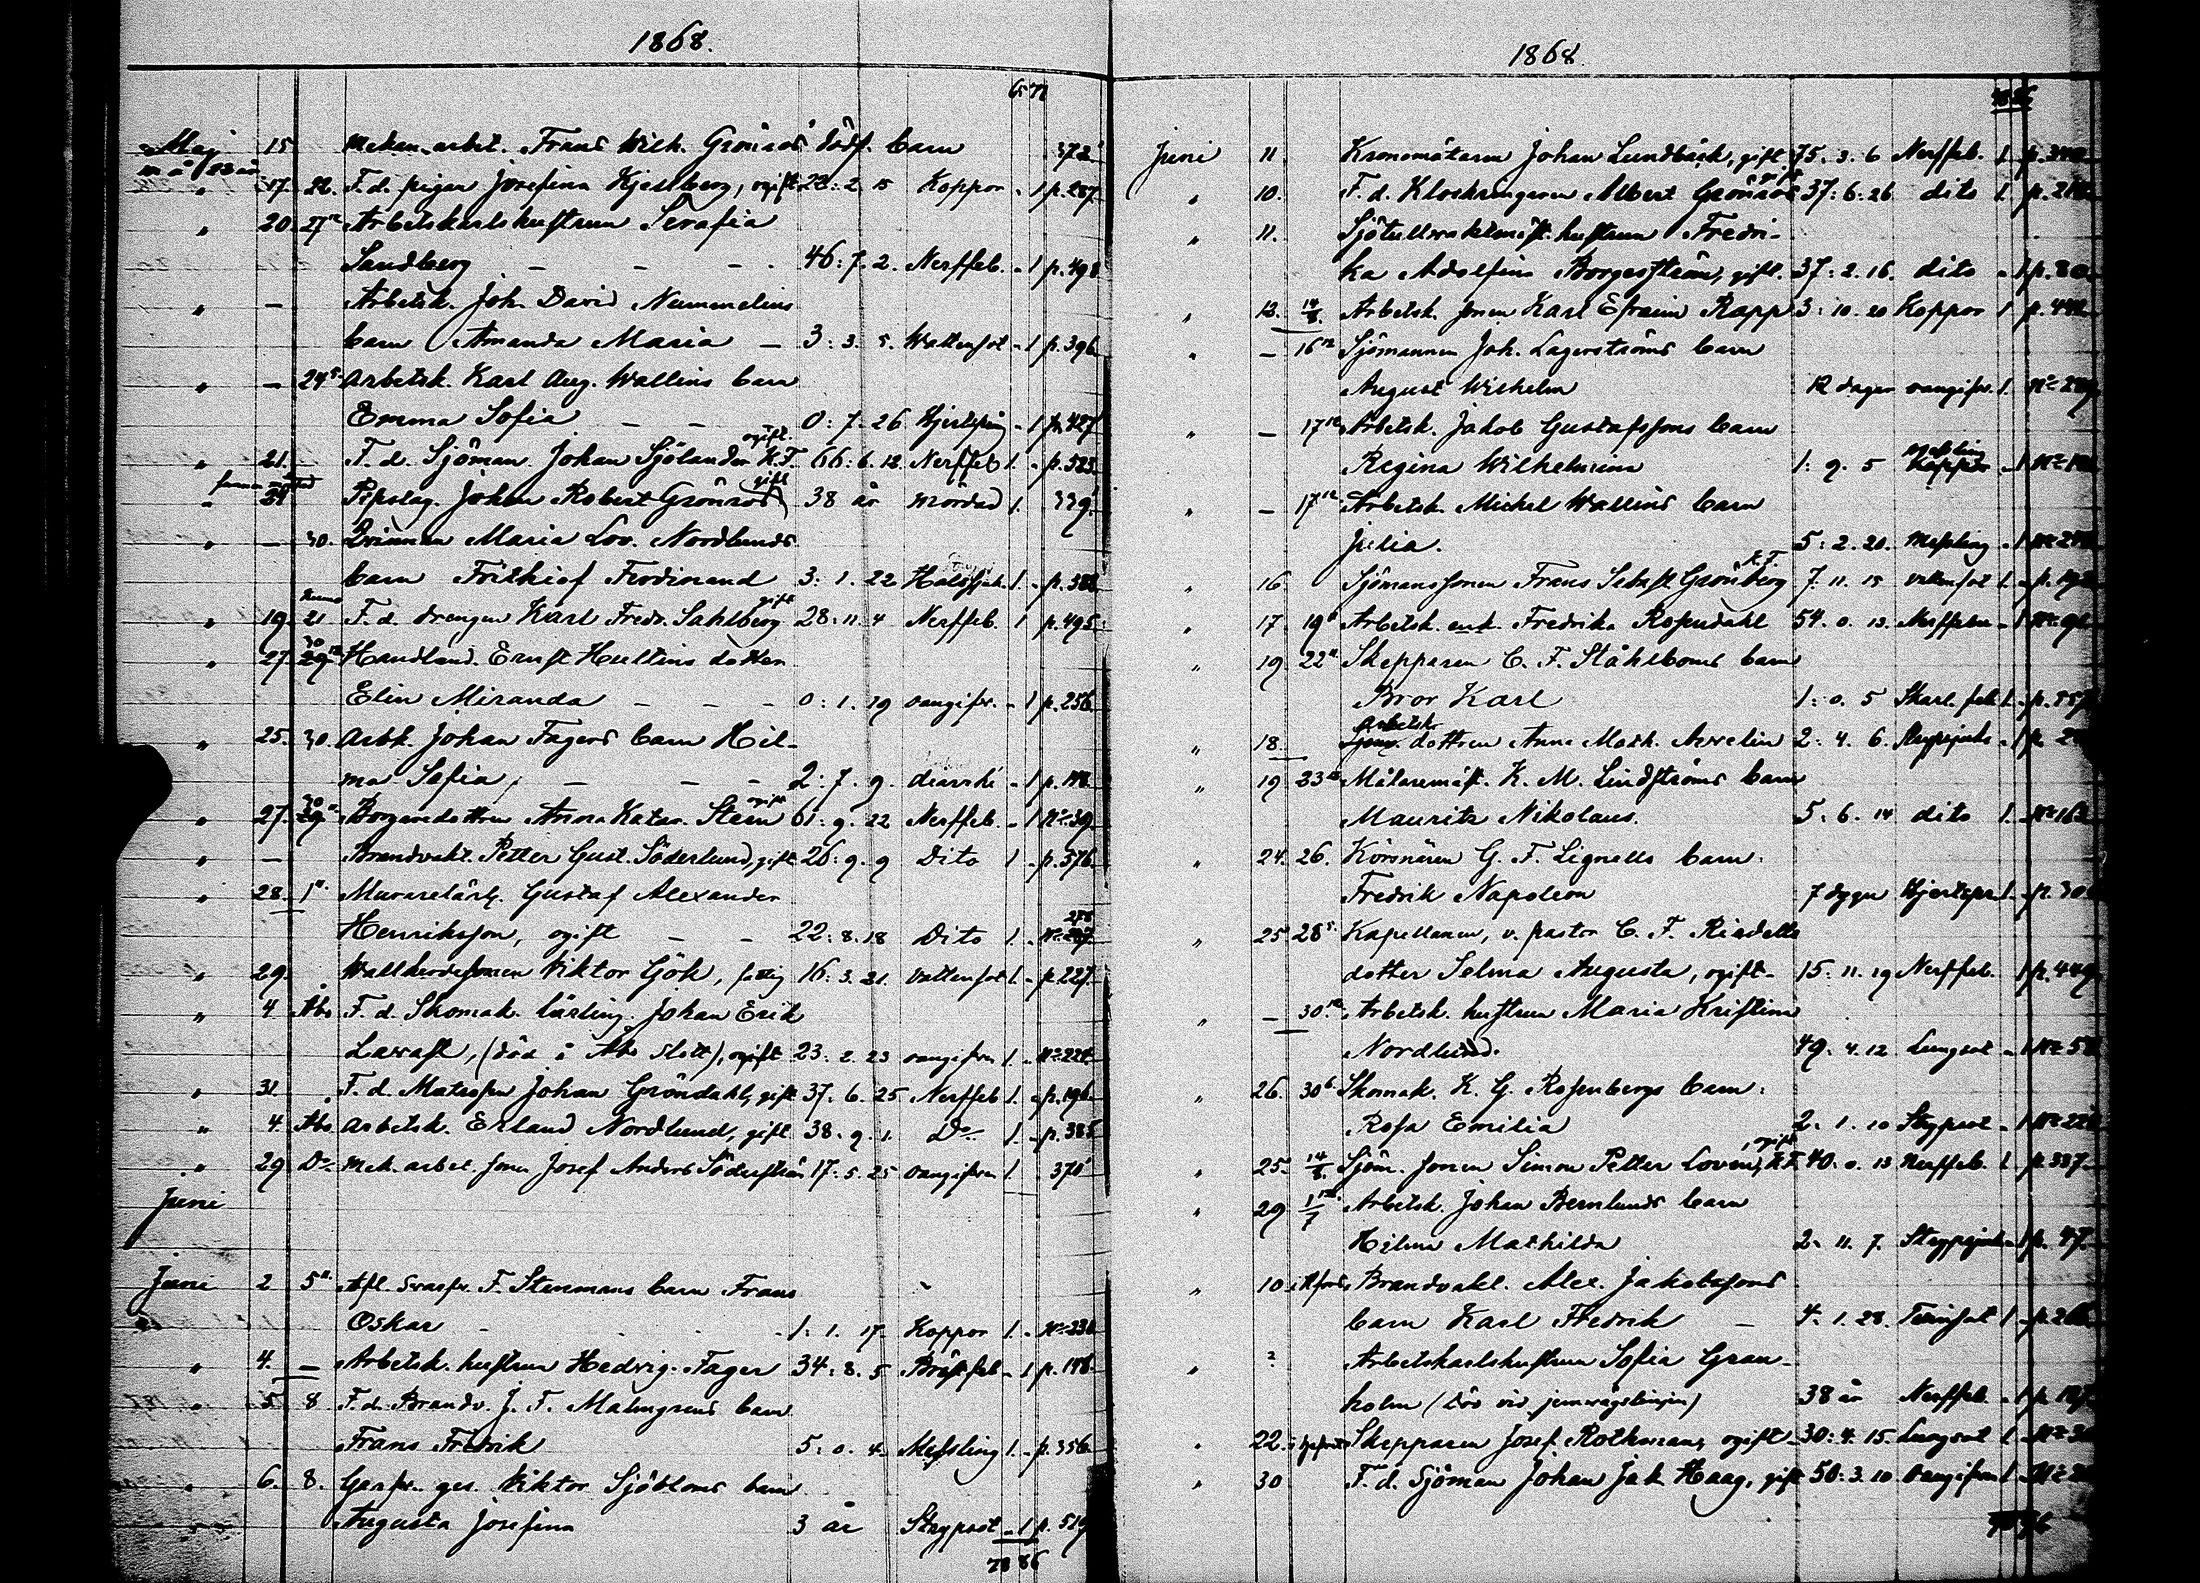 1868.
65 71
Maj 15 Mekan. arbet. Frans Wilh. Grönroos dödf. barn 372
" 17. 22. F. d. pigan Josefina Kjellberg, ogift 22: 2. 15 Koppor - 1 p. 287
" 20. 27 Arbetskarlshustrun Serafia
Sandberg - - - 46: 7. 2. Nerffeb. - 1 p. 498
" - Arbetsk. Joh. David Nummelins
barn Amanda Maria - 3: 3. 5. Wattensot - 1 p. 396
" - 24 Arbetsk. Karl Aug. Wallins barn
Emma Sofia - - 0: 7. 26 Hjertsp. - 1 p. 427
" 21. - F. d. Sjöman Johan Sjölander ogift. K.F. 66: 6. 12. Nerffeb 1. - p. 523
" 24 Pipslag. Johan Robert Grönroos gift 38 år mördad 1. 339
" - 30. Qvinnan Maria Lov. Nordlunds
barn Frithiof Ferdinand 3: 1. 22 Halssjuk. 1. - p. 388
" 19. 21 F. d. drengen Karl Fredr. Sahlberg gift 28: 11. 4 Nerffeb. 1 p. 495
" 27. 30 29 Handland. Ernst Hultins dotter
Elin Miranda - - - 0: 1. 19 oangifv. - 1 p. 256
" 25. 30. Arbk. Johan Fagers barn Hil-
ma Sofia, - - - 2: 7. 9. diarrhé - 1 p. 148
" 27. 30 29 Borgaredottren Anna Katar. Steen ogift 61: 9. 22 Nerffeb. - 1 No 39
" - Brandvakt. Petter Gust. Söderlund, gift 26: 9. 9 Dito 1 - p. 576
" 28. 1 Murarelärl. Gustaf Alexander
Henriksson, ogift - - 22: 8. 18 Dito 1. - No 297 278
" 29. Wallherdesonen Viktor Gök, fattig 16: 3. 21. Vattensot 1. - p. 227
" 4 Åbo F. d. Skomak. lärling. Johan Erik
Lawast, (död i Åbo Slott), ogift 23: 2. 23 oangifven 1. - No 224
" 31. F. d. Matrosen Johan Gröndahl, gift 37: 6. 25 Nerffeb 1. - p. 196
" 4. Åbo Arbetsk. Erland Nordlund, gift 38: 9. 1. Do 1. - p. 385
" 29 Do Mek. arbet. sonen Josef Anders Söderström 17: 5. 25 oangifven 1. 370
Juni
Juni 2 5 Afl. Svarfv. F. Stenmans barn Frans
Oskar - - - 1: 1. 17. Koppor 1. - No 330
" 4. - Arbetsk. hustrun Hedvig Fager 34: 8. 5 Bröstfeb - 1 p. 148
" 5. 8 F. d. Brandv. J. F. Malmgrens barn
Frans Fredrik 5: 0. 4. Messling 1. - p. 356
" 6. 8. Garfv. ges. Viktor Sjöbloms barn
Augusta Josefina 3 år Strypsot - 1 p. 519
78 86
1868.
78 86
Juni 11 Kronomätaren Johan Lundbäck, gift 75. 3. 6 Nerffeb. 1
" 10. F. d. Klockringaren Albert Grönroos gift 37: 6. 26 dito 1.
" 11. Sjötullvaktmäst. hustrun Fredri-
ka Adolfina Borgesström, gift. 37: 2. 16. dito - 1 p. 80
" 12. 14/8. Arbetsk. sonen Karl Efraim Rapp 3: 10. 20 Koppor 1 p. 442
" - 16 Sjömannen Joh. Lagerströms barn
August Wilhelm 12 dagar oangifv. 1.
" - 17 Arbetsk. Jakob Gustafssons barn
Regina Wilhelmina 1: 9. 5 Koppor Messling - 1
" - 17 Arbetsk. Michel Wallins barn
Julia. 5: 2. 20. Messling - 1
" 16 Sjömanssonen Frans Sebast Grönberg K.F. 7. 11. 15 vattensot 1.
" 17. 19 Arbetsk. enk. Fredrika Rosendahl 54. 0. 13. Nerffeber - 1
" 19 22 Skepparen C. F. Ståhlboms barn
Bror Karl 1: 0. 5 Skarl. feb. 1.
" 18. Arbetsk. dottren Anna Math. Avvelin 2: 4. 6. Strypsjuka - 1
" 19 23 Målaremäst. K. M. Lindströms barn
Mauritz Nikolaus. 5: 6. 14 dito 1.
" 24. 26. Körsnären G. F. Lignells barn.
Fredrik Napoleon 7 dygn Hjertspr. 1.
" 25 28 Kapellanen, v. pastor C. F. Riadells
dotter Selma Augusta, ogift 15: 11. 19 Nerffeb. 1 p. 449
" - 30 Arbetsk. hustrun Maria Kristina
Nordlund. 49: 4. 12 Lungsot - 1
" 26. 30 Skomak. K. G. Rosenbergs barn.
Rosa Emilia 2. 1. 10 Strypsot - 1
" 25. 14/8. Sjöm. sonen Simon Petter Lovén, ogift K.F. 40. 0. 13 Nerffeb. 1. p. 337
" 29 1/7 Arbetsk. Johan Bernlunds barn
Hilma Mathilda 2. 11. 7. Strypsjuk. - 1 p. 47.
" 10 Brandvakt. Alex. Jakobssons
barn Karl Fredrik - 4. 1. 28. Tvinsot 1
" ? Arbetskarlshustrun Sofia Gran-
holm (död vid jernvägslinjen) 38 år Nerffeb. - 1
" 22. Skepparen Josef Rothman, ogift 30: 4. 15. Lungsot 1
" 30 F. d. Sjöman Johan Jak. Haag, gift 50: 3. 10 oangifven 1